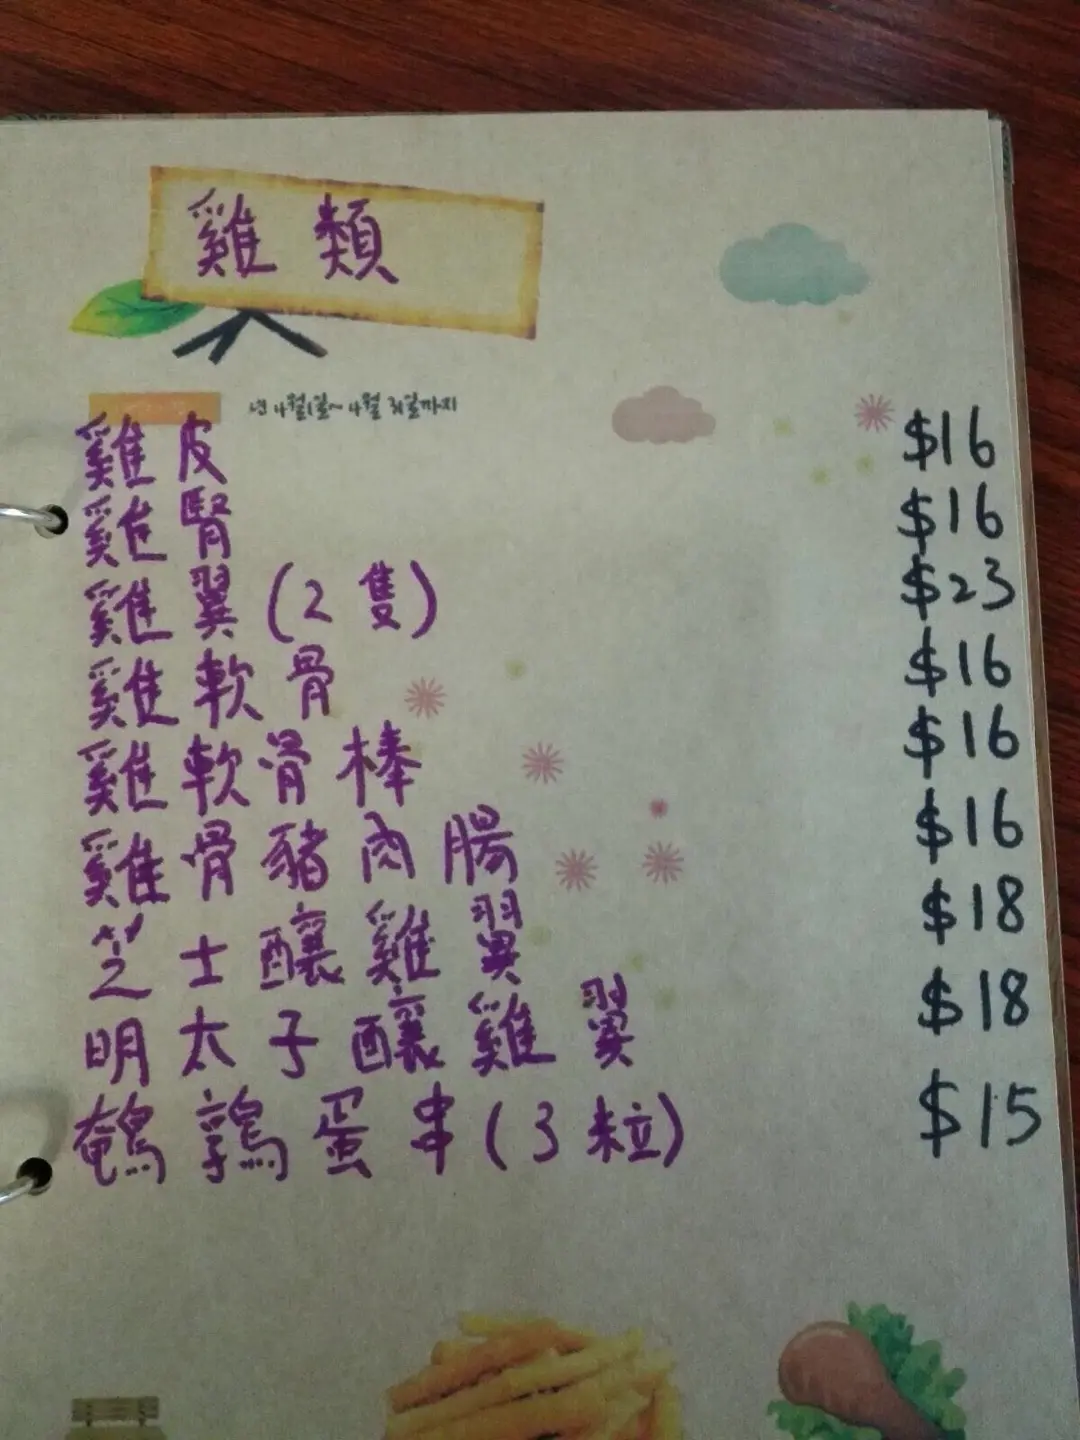 雞類
년 4월1일~ 4월 31일까지
雞皮 $16
雞腎 $16
雞翼(2隻) $23
雞軟骨 $16
雞軟骨棒 $16
雞骨豬肉腸 $16
芝士釀雞翼 $18
明太子釀雞翼 $18
鵪鶉蛋串(3粒) $15